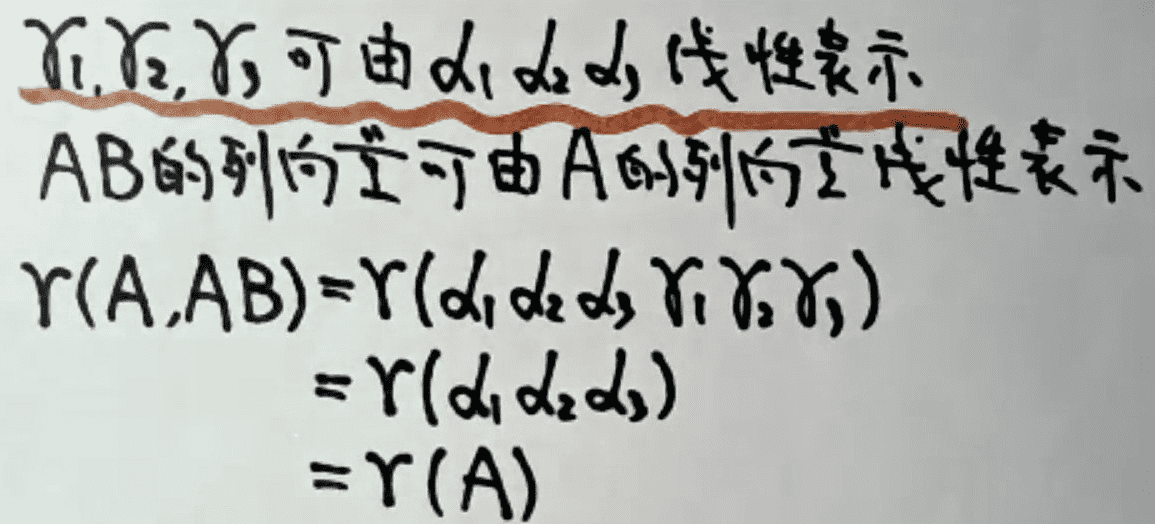 γ₁,γ₂,γ₃可由α₁α₂α₃线性表示
AB的列向量可由A的列向量线性表示
r(A,AB)=r(α₁α₂α₃γ₁γ₂γ₃)
=r(α₁α₂α₃)
=r(A)